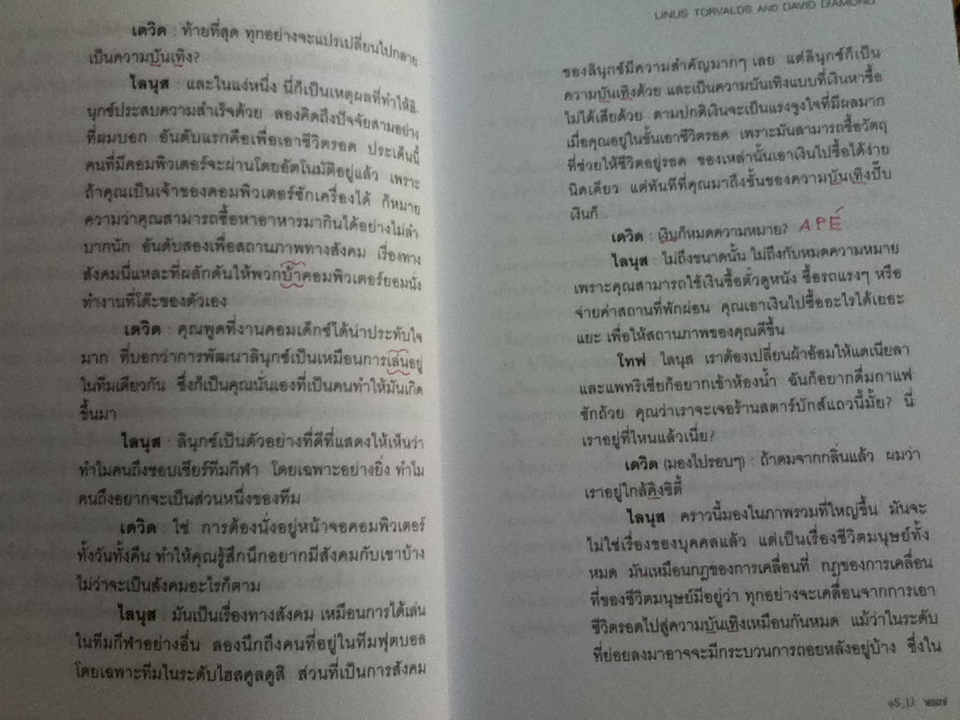 เดวิด : ท้ายที่สุด ทุกอย่างจะแปรเปลี่ยนไปกลาย
เป็นความบันเทิง?
ไลนุส : และในแง่หนึ่ง นี่ก็เป็นเหตุผลที่ทำให้ลิ-
นุกซ์ประสบความสำเร็จด้วย ลองคิดถึงปัจจัยสามอย่าง
ที่ผมบอก อันดับแรกคือเพื่อเอาชีวิตรอด ประเด็นนี้
คนที่มีคอมพิวเตอร์จะผ่านโดยอัตโนมัติอยู่แล้ว เพราะ
ถ้าคุณเป็นเจ้าของคอมพิวเตอร์ซักเครื่องได้ ก็หมาย
ความว่าคุณสามารถซื้อหาอาหารมากินได้อย่างไม่ลำ
บากนัก อันดับสองเพื่อสถานภาพทางสังคม เรื่องทาง
สังคมนี่แหละที่ผลักดันให้พวกบ้าคอมพิวเตอร์ยอมนั่ง
ทำงานที่โต๊ะของตัวเอง
เดวิด : คุณพูดที่งานคอมเด็กซ์ได้น่าประทับใจ
มาก ที่บอกว่าการพัฒนาลินุกซ์เป็นเหมือนการเล่นอยู่
ในทีมเดียวกัน ซึ่งก็เป็นคุณนั่นเองที่เป็นคนทำให้มันเกิด
ขึ้นมา
ไลนุส : ลินุกซ์เป็นตัวอย่างที่ดีที่แสดงให้เห็นว่า
ทำไมคนถึงชอบเชียร์ทีมกีฬา โดยเฉพาะอย่างยิ่ง ทำไม
คนถึงอยากจะเป็นส่วนหนึ่งของทีม
เดวิด : ใช่ การต้องนั่งอยู่หน้าจอคอมพิวเตอร์
ทั้งวันทั้งคืน ทำให้คุณรู้สึกนึกอยากมีสังคมกับเขาบ้าง
ไม่ว่าจะเป็นสังคมอะไรก็ตาม
ไลนุส : มันเป็นเรื่องทางสังคม เหมือนการได้เล่น
ในทีมกีฬาอย่างอื่น ลองนึกถึงคนที่อยู่ในทีมฟุตบอล
โดยเฉพาะทีมในระดับไฮสคูลดูสิ ส่วนที่เป็นการสังคม
LINUS TORVALDS AND DAVID DIAMOND
ของลินุกซ์มีความสำคัญมากๆ เลย แต่ลินุกซ์ก็เป็น
ความบันเทิงด้วย และเป็นความบันเทิงแบบที่เงินหาซื้อ
ไม่ได้เสียด้วย ตามปกติเงินจะเป็นแรงจูงใจที่มีผลมาก
เมื่อคุณอยู่ในขั้นเอาชีวิตรอด เพราะมันสามารถซื้อวัตถุ
ที่ช่วยให้ชีวิตอยู่รอด ของเหล่านั้นเอาเงินไปซื้อได้ง่าย
นิดเดียว แต่ทันทีที่คุณมาถึงขั้นของความบันเทิงปั๊บ
เงินก็
เดวิด : เงินก็หมดความหมาย? APÉ
ไลนุส : ไม่ถึงขนาดนั้น ไม่ถึงกับหมดความหมาย
เพราะคุณสามารถใช้เงินซื้อตั๋วดูหนัง ซื้อรถแรงๆ หรือ
จ่ายค่าสถานที่พักผ่อน คุณเอาเงินไปซื้ออะไรได้เยอะ
แยะ เพื่อให้สถานภาพของคุณดีขึ้น
โทฟ : ไลนุส เราต้องเปลี่ยนผ้าอ้อมให้แดเนียลา
และแพทริเซียก็อยากเข้าห้องน้ำ ฉันก็อยากดื่มกาแฟ
ซักถ้วย คุณว่าเราจะเจอร้านสตาร์บักส์แถวนี้มั้ย? นี่
เราอยู่ที่ไหนแล้วเนี่ย?
เดวิด (มองไปรอบๆ) : ถ้าดมจากกลิ่นแล้ว ผมว่า
เราอยู่ใกล้คิงซิตี้
ไลนุส : คราวนี้มองในภาพรวมที่ใหญ่ขึ้น มันจะ
ไม่ใช่เรื่องของบุคคลแล้ว แต่เป็นเรื่องชีวิตมนุษย์ทั้ง
หมด มันเหมือนกฎของการเคลื่อนที่ กฎของการเคลื่อน
ที่ของชีวิตมนุษย์มีอยู่ว่า ทุกอย่างจะเคลื่อนจากการเอา
ชีวิตรอดไปสู่ความบันเทิงเหมือนกันหมด แม้ว่าในระดับ
ที่ย่อยลงมาอาจจะมีกระบวนการถอยหลังอยู่บ้าง ซึ่งใน
๒๓๗